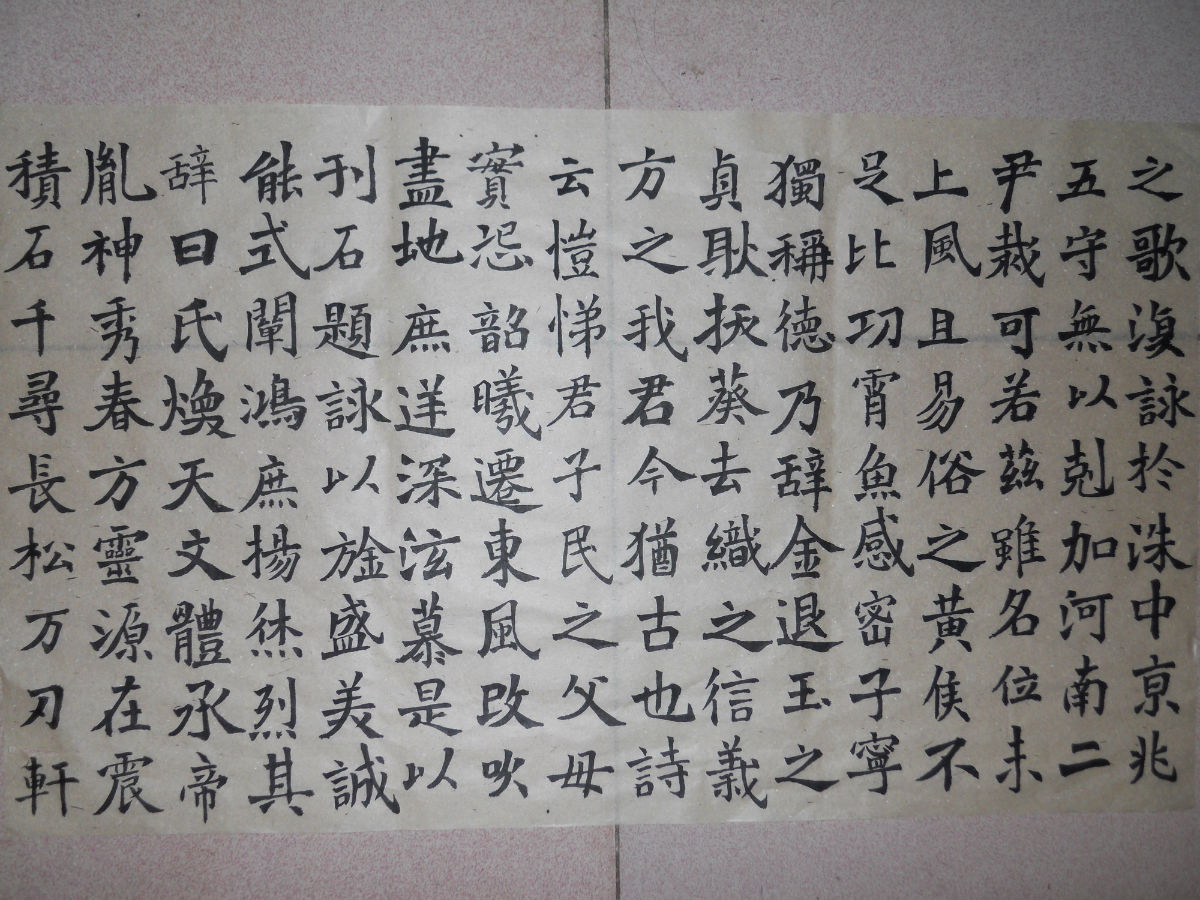 之歌復詠於洙中亰兆
五守無以剋加河南二
尹裁可若茲雖名位未
上風且易俗之黃侯不
足比功霄魚感密子寧
獨稱德乃辞金退玉之
貞耿拔葵去織之信義
方之我君今猶古也詩
云愷悌君子民之父母
實恐韶曦遷東風改吹
盡地庶逬深泫慕是以
刊石題詠以旌盛美誠
能式闡鴻庶揚烋烈其
辞曰氏煥天文體承帝
胤神秀春方靈源在震
積石千尋長松万刃軒